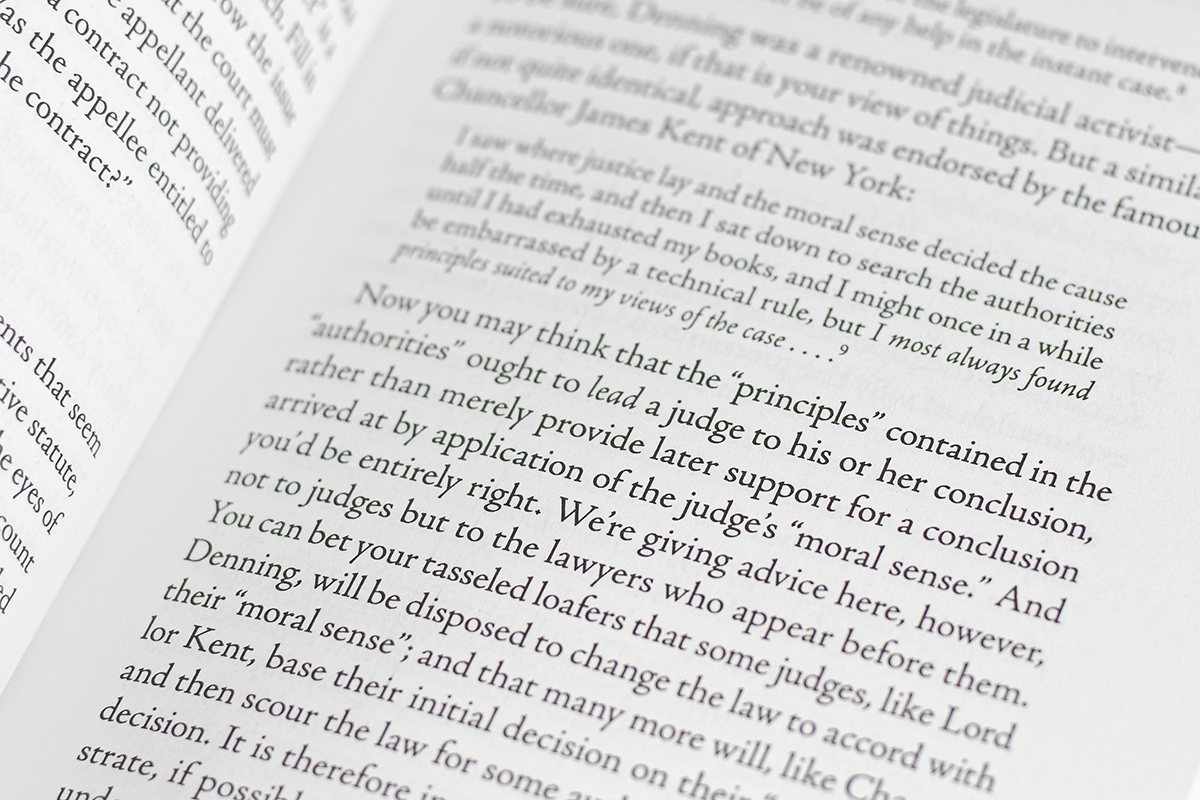 row the issue
at the court must
e appellant delivered
a contract not providing
as the appellee entitled to
he contract?”
ents that seem
tive statute,
he eyes of
count
ed
the legislature to interven
be of any help in the instant case.8
to be sure, Denning was a renowned judicial activist—
a notorious one, if that is your view of things. But a simil
if not quite identical, approach was endorsed by the famou
Chancellor James Kent of New York:
I saw where justice lay and the moral sense decided the cause
half the time, and then I sat down to search the authorities
until I had exhausted my books, and I might once in a while
be embarrassed by a technical rule, but I most always found
principles suited to my views of the case . . . .9
Now you may think that the “principles” contained in the
“authorities” ought to lead a judge to his or her conclusion,
rather than merely provide later support for a conclusion
arrived at by application of the judge’s “moral sense.” And
you’d be entirely right. We’re giving advice here, however,
not to judges but to the lawyers who appear before them.
You can bet your tasseled loafers that some judges, like Lord
Denning, will be disposed to change the law to accord with
their “moral sense”; and that many more will, like Cha
lor Kent, base their initial decision on their “
and then scour the law for some
decision. It is therefore
strate, if